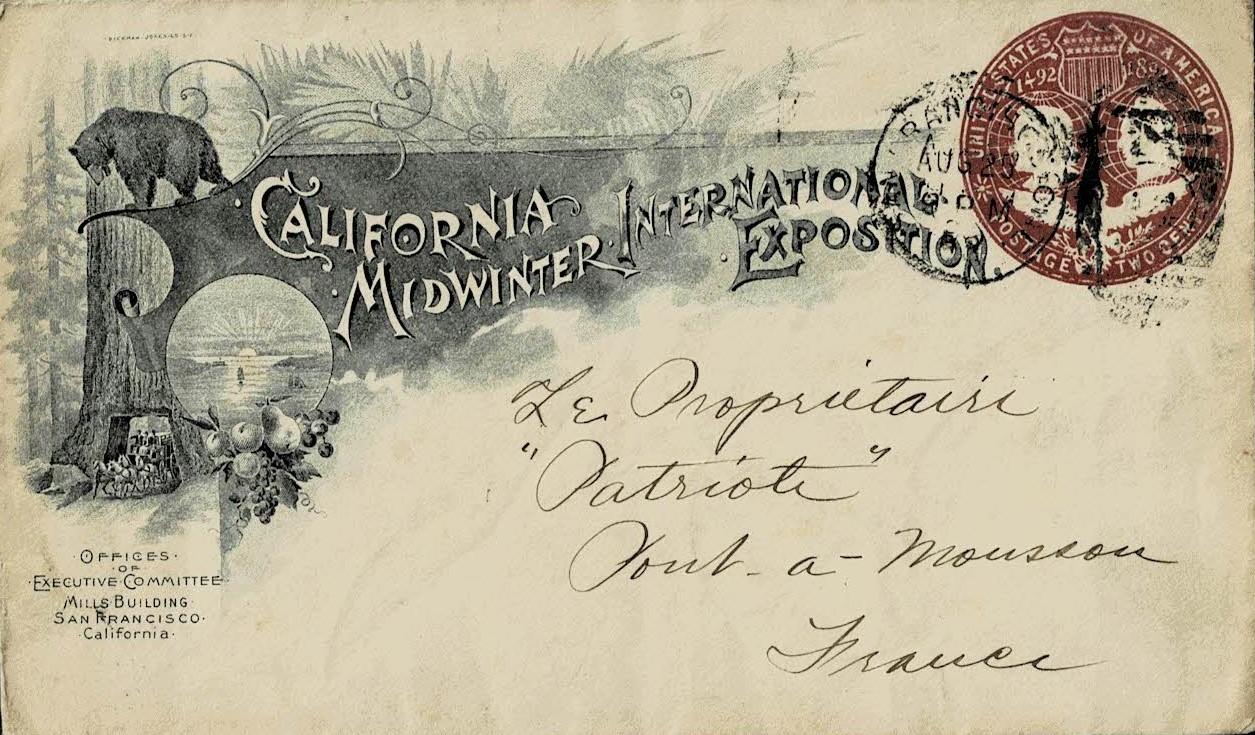 DICKMAN-JONES CO. S.F.
CALIFORNIA
MIDWINTER INTERNATIONAL
EXPOSITION.
UNITED STATES OF AMERICA
1492
POSTAGE TWO CENTS
AUG 29
PM
Le Propriétaire
"Patriote"
Pont-a-Mousson
France
·OFFICES·
·OF·
·EXECUTIVE·COMMITTEE·
MILLS·BUILDING·
SAN FRANCISCO·
·California·